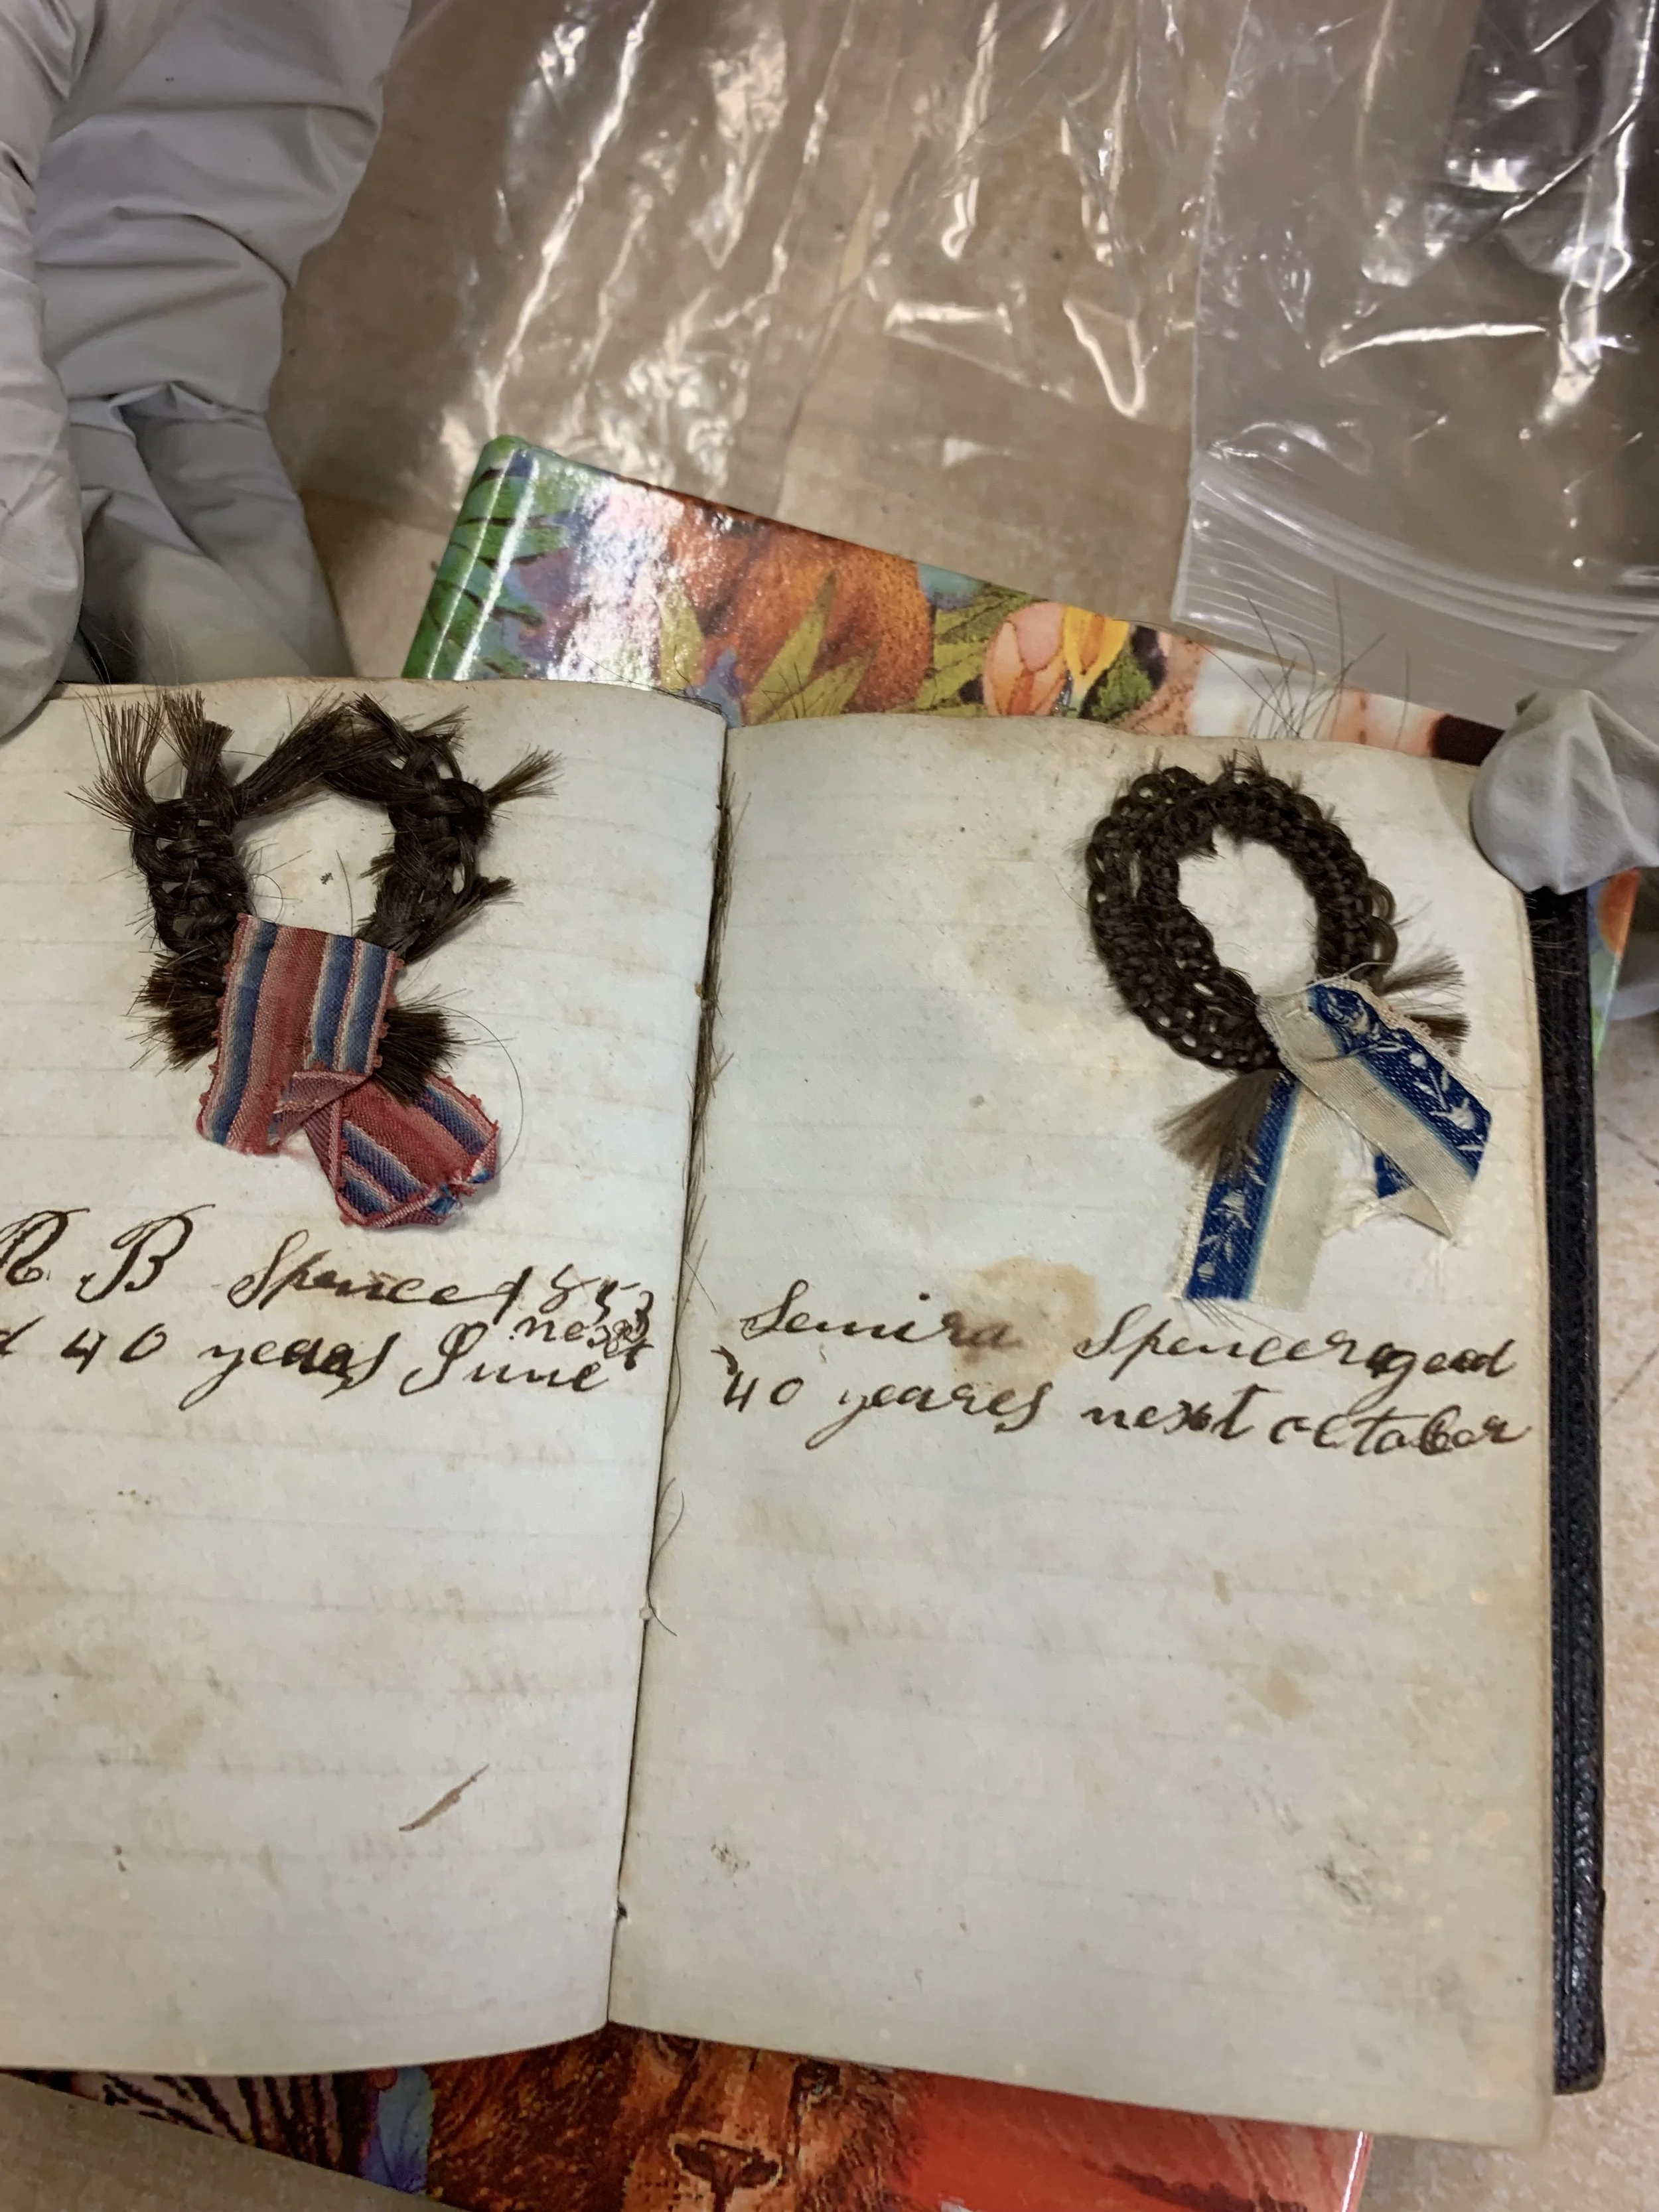 R B Spencer 1853
d 40 years June next
Semira Spencer aged
40 yeares next October